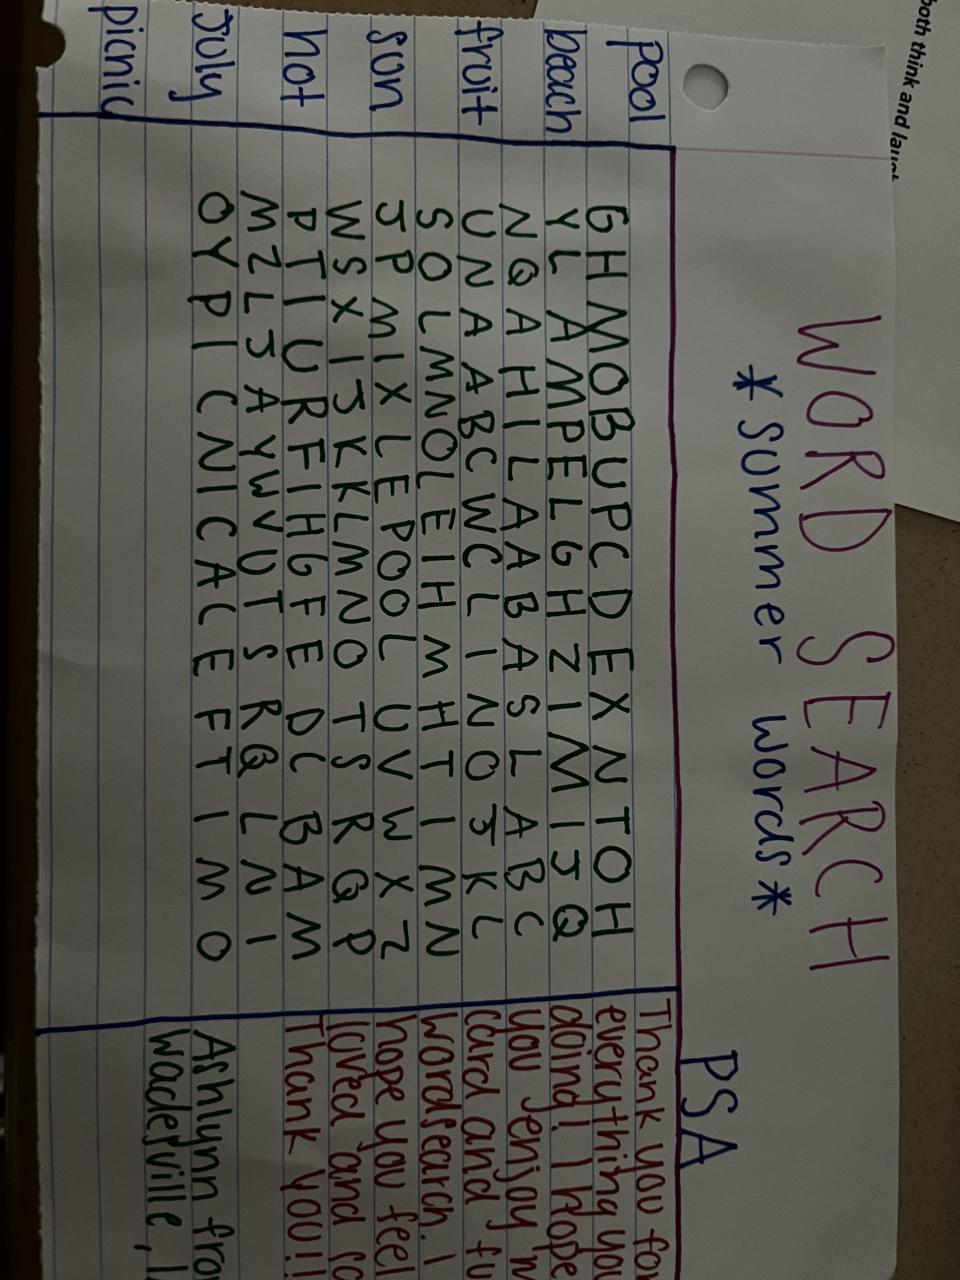 both think and laugh
WORD SEARCH
*summer words*
PSA
pool
beach
fruit
sun
hot
July
picnic
G H M O B U P C D E X N T O H
Y L A M P E L G H Z I M I J Q
N Q A H I L A A B A S L A B C
U N A A B C W C L I N O J K L
S O L M N O L E I H M H T I M N
J P M I X L E P O O L U V W X Z
W S X I J K K L M N O T S R Q P
P T I U R F I H G F E D C B A M
M Z L J A Y W V U T S R Q L N I
O Y P I C N I C A C E F T I M O
Thank you for
everything you
doing! I hope
you enjoy m
card and fu
wordsearch. I
hope you feel
loved and
Thank you!!
Ashlynn from
Wadesville,